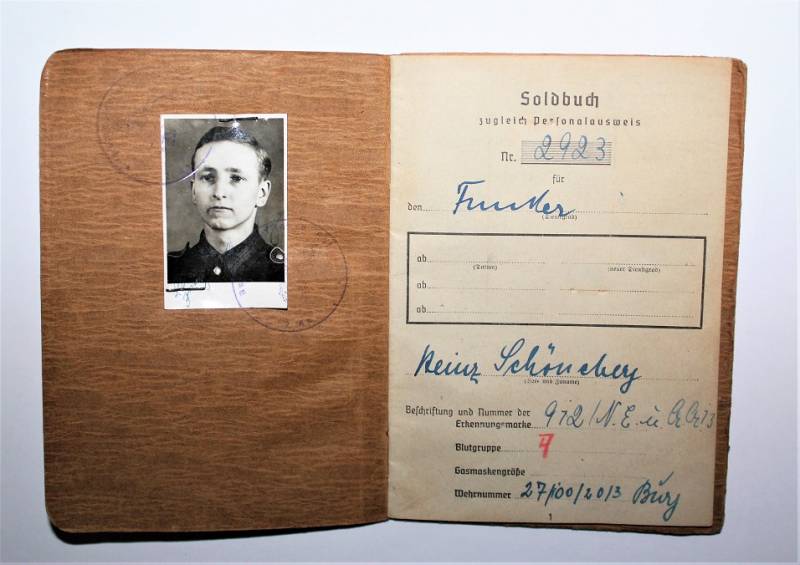 Soldbuch
zugleich Personalausweis
Nr. 2923
für
den Funker
(Dienstgrad)
ab
(Datum) (neuer Dienstgrad)
ab
ab
Heinz Schöneberg
(Vor- und Zuname)
Beschriftung und Nummer der
Erkennungsmarke 912/N.E.u.
Blutgruppe
Gasmaskengröße
Wehrnummer 27/100/20/3 Burg
1